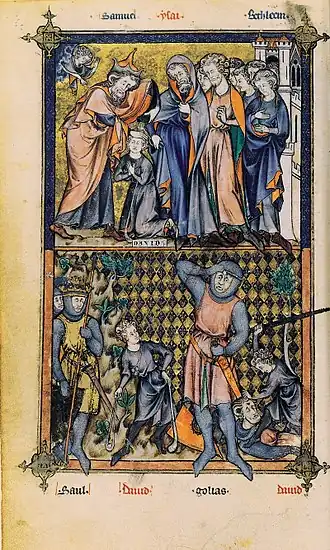 Samuel ysai Bethleem
DAVID
Saul. David golias. david